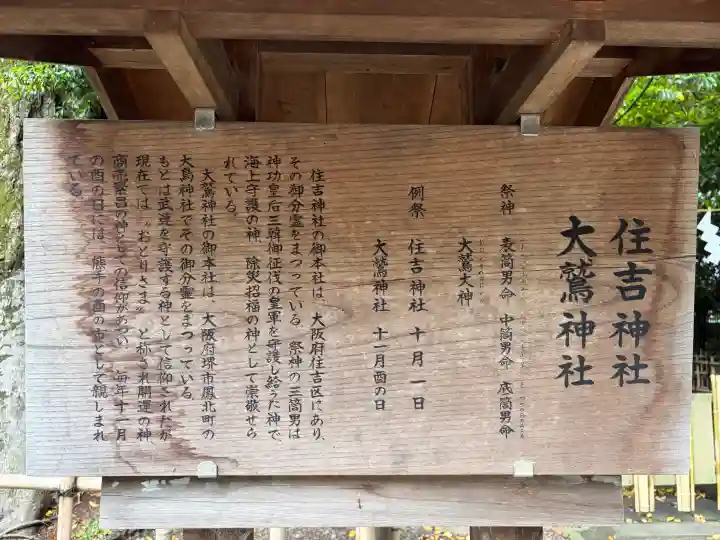 住吉神社
大鷲神社
祭神 表筒男命 中筒男命 底筒男命
大鷲大神
例祭 住吉神社 十月一日
大鷲神社 十一月酉の日
住吉神社の御本社は、大阪府住吉区にあり、
その御分霊をまつっている。祭神の三筒男は
神功皇后三韓御征伐の皇軍を守護し給うた神で、
海上守護の神、除災招福の神として崇敬せら
れている。
大鷲神社の御本社は、大阪府堺市鳳北町の
大鳥神社でその御分霊をまつっている。
もとは武運を守護する神として信仰されたが
現在では〝おとりさま〟と称され開運の神
商売繁昌の神としての信仰があつい。毎年十一月
の酉の日には、熊手の酉の市として親しまれ
ている。